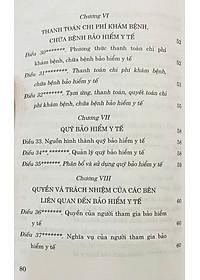 Chương VI
THANH TOÁN CHI PHÍ KHÁM BỆNH,
CHỮA BỆNH BẢO HIỂM Y TẾ
Điều 30*******. Phương thức thanh toán chi phí
khám bệnh, chữa bệnh bảo hiểm y tế 52
Điều 31*******. Thanh toán chi phí khám bệnh,
chữa bệnh bảo hiểm y tế
Điều 32*******. Tạm ứng, thanh toán, quyết toán chi
phí khám bệnh, chữa bệnh bảo hiểm y tế
Chương VII
QUỸ BẢO HIỂM Y TẾ 58
Điều 33. Nguồn hình thành quỹ bảo hiểm y tế 58
Điều 34**,*******. Quản lý quỹ bảo hiểm y tế 58
Điều 35*******. Phân bổ và sử dụng quỹ bảo hiểm y tế 58
Chương VIII
QUYỀN VÀ TRÁCH NHIỆM CỦA CÁC BÊN
LIÊN QUAN ĐẾN BẢO HIỂM Y TẾ 60
Điều 36*******. Quyền của người tham gia bảo hiểm
y tế 60
Điều 37*******. Nghĩa vụ của người tham gia bảo
hiểm y tế 60
80